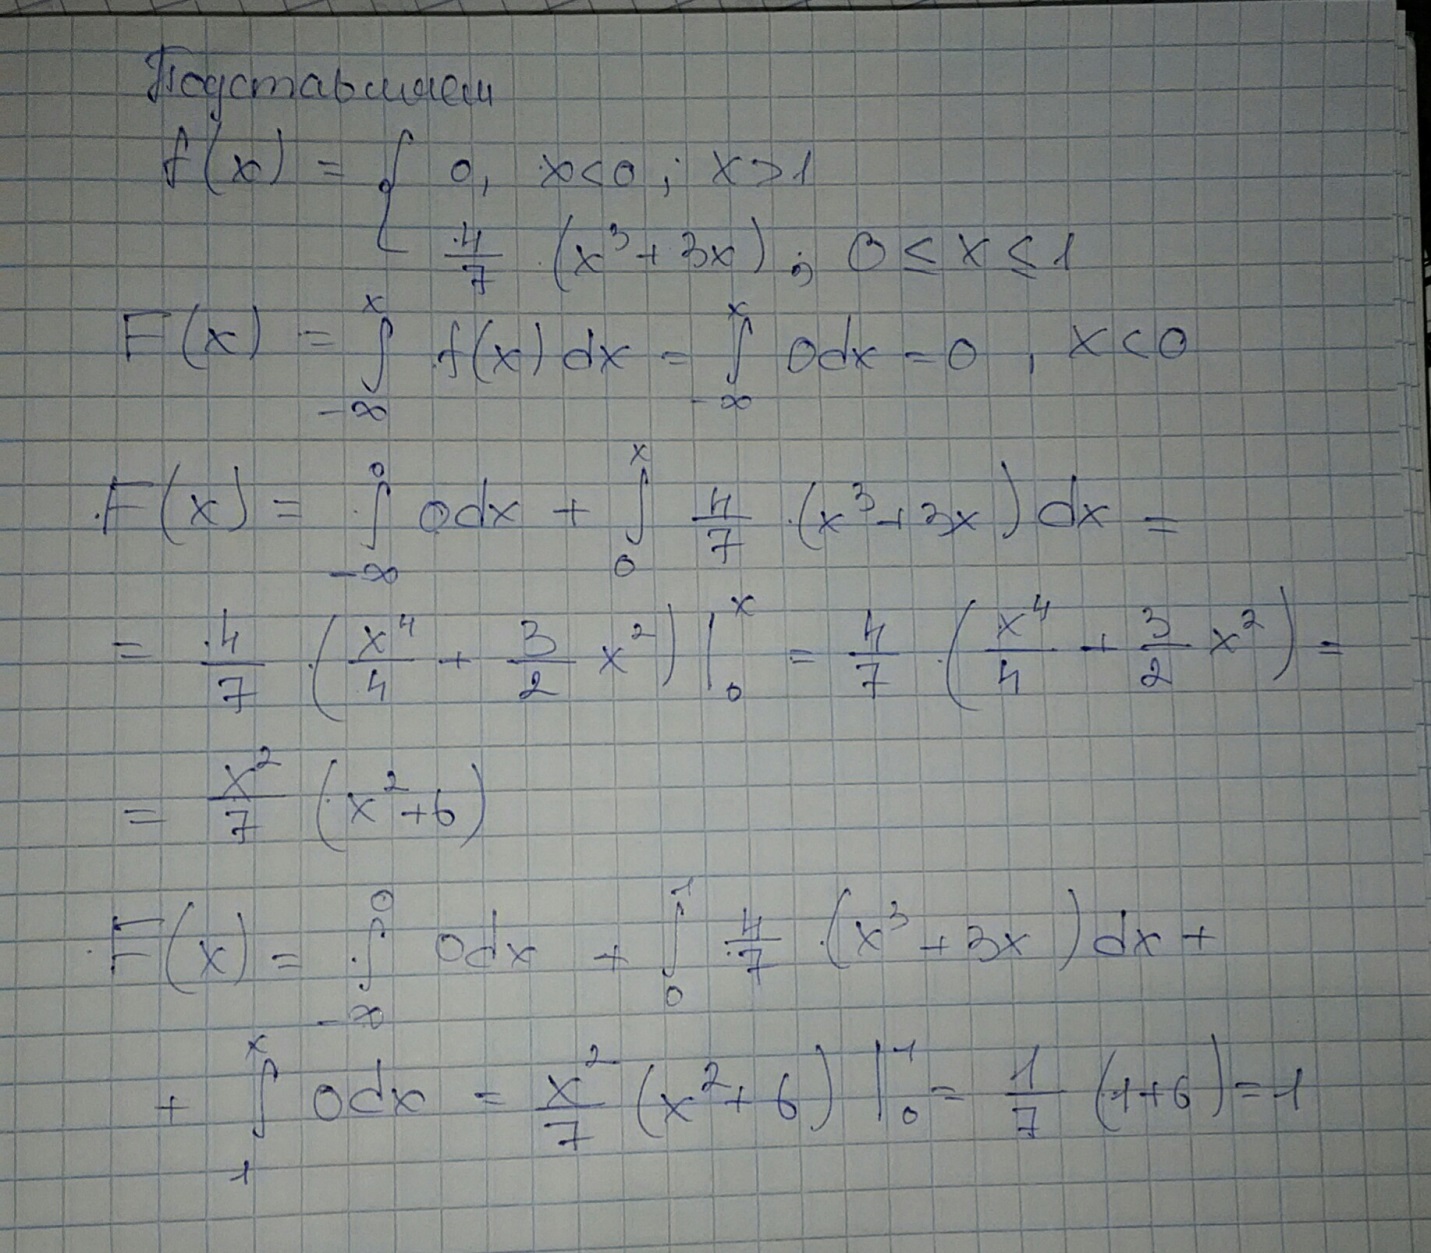 Подставляем
f(x) = { 0, x<0; x>1
4/7 · (x³+3x); 0 ≤ x ≤ 1
F(x) = ∫_{-∞}^{x} f(x)dx = ∫_{-∞}^{x} 0dx = 0, x<0
F(x) = ∫_{-∞}^{0} 0dx + ∫_{0}^{x} 4/7 · (x³+3x)dx =
= 4/7 · (x⁴/4 + 3/2 x²) |_{0}^{x} = 4/7 · (x⁴/4 + 3/2 x²) =
= x²/7 (x²+6)
F(x) = ∫_{-∞}^{0} 0dx + ∫_{0}^{1} 4/7 · (x³+3x)dx +
+ ∫_{1}^{x} 0dx = x²/7 (x²+6) |_{0}^{1} = 1/7 (1+6) = 1